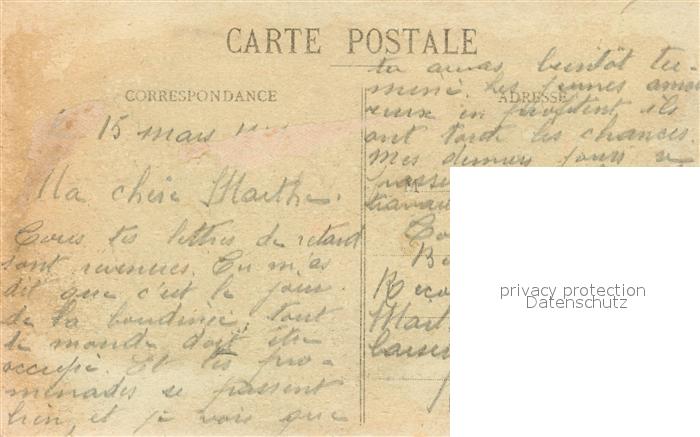 CARTE POSTALE
CORRESPONDANCE
ADRESSE
15 mars
Ma chère Marthe.
Toutes tes lettres de retard
sont revenues. Tu m'as
dit que c'est le jour
de ta boudinée, tout
le monde doit être
occupé. Et tes pro-
menades se passent
bien, et je vois que
tu auras bientôt ter-
miné. Les jeunes amou
reux en profitent ils
ont toute les chances.
Mes derniers jours se
passe
travau
M
Bo
Reco
Mart
baiser
privacy protection
Datenschutz